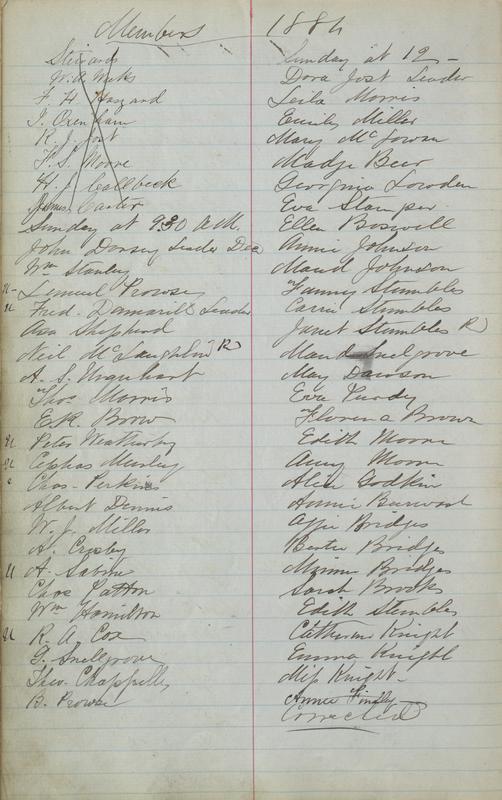 Members 1886
Stewards
W. A. Weeks
F. H. Hazard
I. Oxenham
R. J. Jost
T. S. Moore
H. J. Callbeck
James Carter
Sunday at 9.30 A.M.
John Dorsey Leader Dea
Wm Stanley
Lemuel Prowse
Fred. Damarill Leader
Asa Shepherd
Neil McLaughlin R
A. S. Urquhart
Thos Morris
E.R. Brow
Peter Weatherby
Cephas Munley
Chas. Perkins
Albert Dennis
W. J. Miller
A. Crosby
A. Sabine
Chas Patton
Wm Hamilton
R. A. Cox
G. Snellgrove
Theo. Chappelle
B. Prowse
Sunday at 12 -
Dora Jost Leader
Leila Morris
Emily Miller
Mary McGowan
Madge Beer
Georgina Lowden
Eva Stamper
Ellen Boswell
Annie Johnson
Maud Johnson
Fanny Stumbles
Carrie Stumbles
Janet Stumbles R
Maud Snelgrove
May Dawson
Eva Purdy
Florena Brown
Edith Moore
Amy Moore
Alice Godkin
Annie Burwood
Affie Bridges
Bertie Bridges
Minnie Bridges
Sarah Brooks
Edith Stumbles
Catherine Knight
Emma Knight
Miss Knight
Annie Findley
Corrected